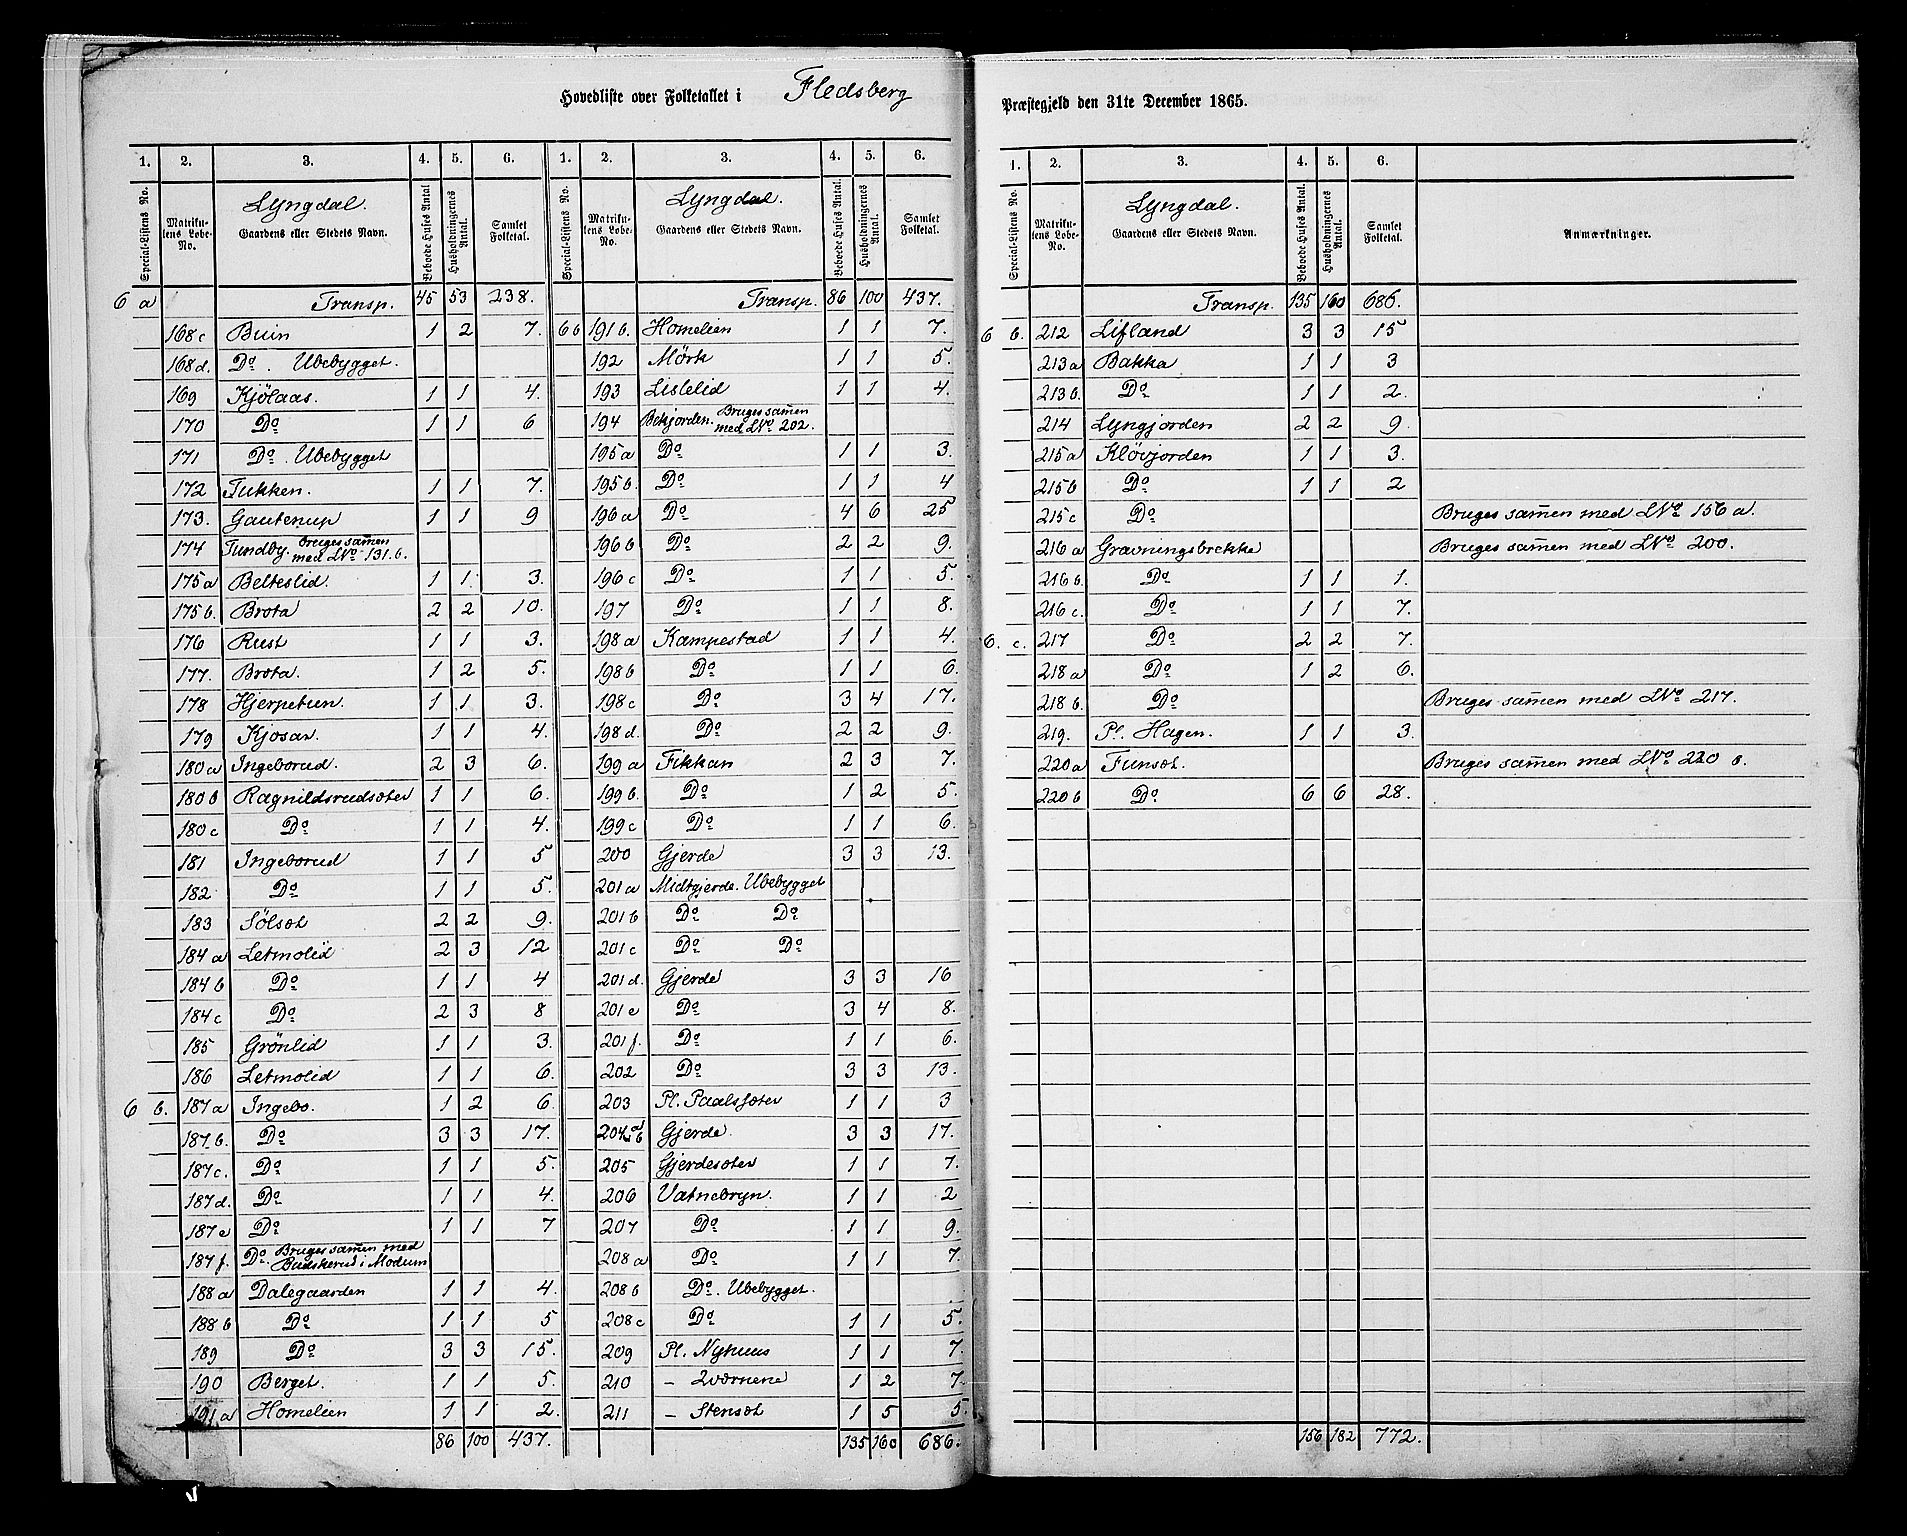 Hovedliste over Folketallet i Fledsberg
1. 2. 3. 4. 5. 6. 1. 2. 3. 4. 5. 6.
Special-Listens No. Matrikulens Løbe-No. Lyngdal. Gaardens eller Stedets Navn. Beboede Huses Antal. Husholdningernes Antal. Samlet Folketal.
Special-Listens No. Matrikulens Løbe-No. Lyngdal. Gaardens eller Stedets Navn. Beboede Huses Antal. Husholdningernes Antal. Samlet Folketal.
6 a Transp. 45 53 238.
168 c Buin 1 2 7.
168 d. Do. Ubebygget.
169 Kjölaas. 1 1 4.
170 Do 1 1 6
171 Do. Ubebygget
172 Tukken. 1 1 7.
173. Gauterup 1 1 9
174 Tundby. bruges samen med LNo 131. b.
175 a Belteslid. 1 1. 3.
175 b. Brota 2 2 10.
176 Rust 1 1 3.
177. Brota. 1 2 5.
178 Hjerpetun. 1 1 3.
179 Kjosar. 1 1 4.
180 a Ingeborud. 2 3 6.
180 b Ragnildsrudsæter 1 1 6.
180 c Do 1 1 4.
181 Ingeborud 1 1 5
182 Do 1 1 5.
183 Sölsæt 2 2 9.
184 a Letmolid 2 3 12
184 b Do 1 1 4
184 c Do 2 3 8
185 Grönlid 1 1 3.
186 Letmolid 1 1 6.
6 b. 187 a Ingebo. 1 2 6.
187. b. Do 3 3 17.
187 c. Do 1 1 5.
187 d. Do 1 1 4.
187 e Do 1 1 7
187 f. Do. Bruges samen med Budskerud i Modum
188 a Dalegaarden 1 1 4.
188 b Do 1 1 5
189 Do 3 3 15.
190 Berget. 1 1 5.
191 a Homelien 1 1 2.
86 100 437.
Transp. 86 100 437.
6 b 191 b. Homelien 1 1 7.
192 Mörk 1 1 5.
193 Lislelid 1 1 4.
194 Bekjorden. Bruges samen med LNo 202.
195 a Do 1 1 3.
195 b. Do 1 1 4
196 a Do 4 6 25
196 b Do 2 2 9.
196 c Do 1 1 5.
197 Do 1 1 8.
198 a Kampestad 1 1 4.
198 b Do 1 1 6.
198 c Do 3 4 17.
198 d. Do 2 2 9.
199 a Fikkan 2 3 7.
199 b. Do 1 2 5.
199 c Do 1 1 6.
200 Gjerde 3 3 13.
201 a Midtgjerde. Ubebygget
201 b Do Do
201 c Do Do
201 d. Gjerde 3 3 16
201 e Do 3 4 8.
201 f. Do 1 1 6.
202 Do 3 3 13.
203 Pl. Paalssæter 1 1 3
204 a b Gjerde. 3 3 17.
205 Gjerdesæter 1 1 7.
206 Vatnebryn. 1 1 2
207 Do 1 1 9.
208 a Do 1 1 7.
208 b Do. Ubebygget.
208 c Do 1 1 5.
209 Pl. Nyhuus 1 1 7.
210 - Qværnene 1 2 7.
211 - Stensæt 1 5 5.
135 160 686.
Præstegjeld den 31te December 1865.
1. 2. 3. 4. 5. 6.
Special-Listens No. Matrikulens Løbe-No. Lyngdal. Gaardens eller Stedets Navn. Beboede Huses Antal. Husholdningernes Antal. Samlet Folketal. Anmærkninger.
Transp. 135 160 686.
6 b. 212 Lifland 3 3 15
213 a Bakka 1 1 3
213 b. Do 1 1 2.
214 Lyngjorden 2 2 9.
215 a Klövjorden 1 1 3.
215 b Do 1 1 2
215 c Do Bruges samen med LNo 156 a.
216 a Gravningsbrekke Bruges samen med LNo 200.
216 b. Do 1 1 1.
216 c. Do 1 1 7.
6. c. 217 Do 2 2 7.
218 a Do 1 2 6.
218 b. Do Bruges samen med LNo 217.
219. Pl. Hagen. 1 1 3.
220 a Funsæt. Bruges samen med LNo 220 b.
220 b Do 6 6 28.
156 182 772.